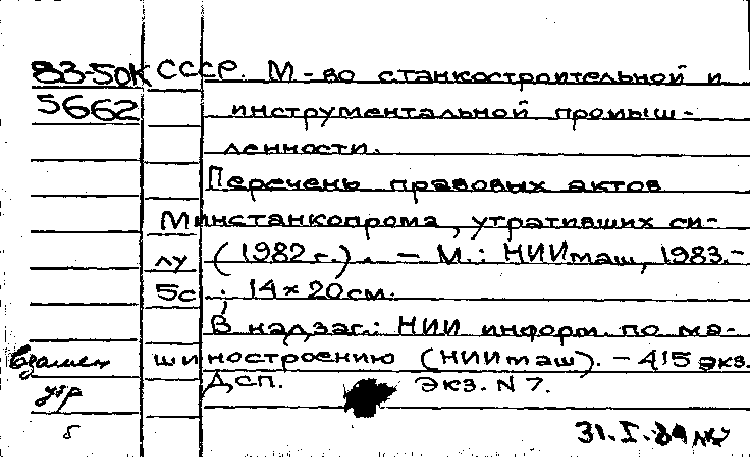 83-50К СССР. М-во станкостроительной и
5662 инструментальной промыш-
ленности.
Перечень правовых актов
Минстанкопрома, утративших си-
лу (1982 г.). - М.: НИИмаш, 1983.-
5с.; 14×20см.
В надзаг.: НИИ информ. по ма-
взамен шиностроению (НИИмаш). - 415 экз.
утр ДСП. Экз. N 7.
Б 31.I.84